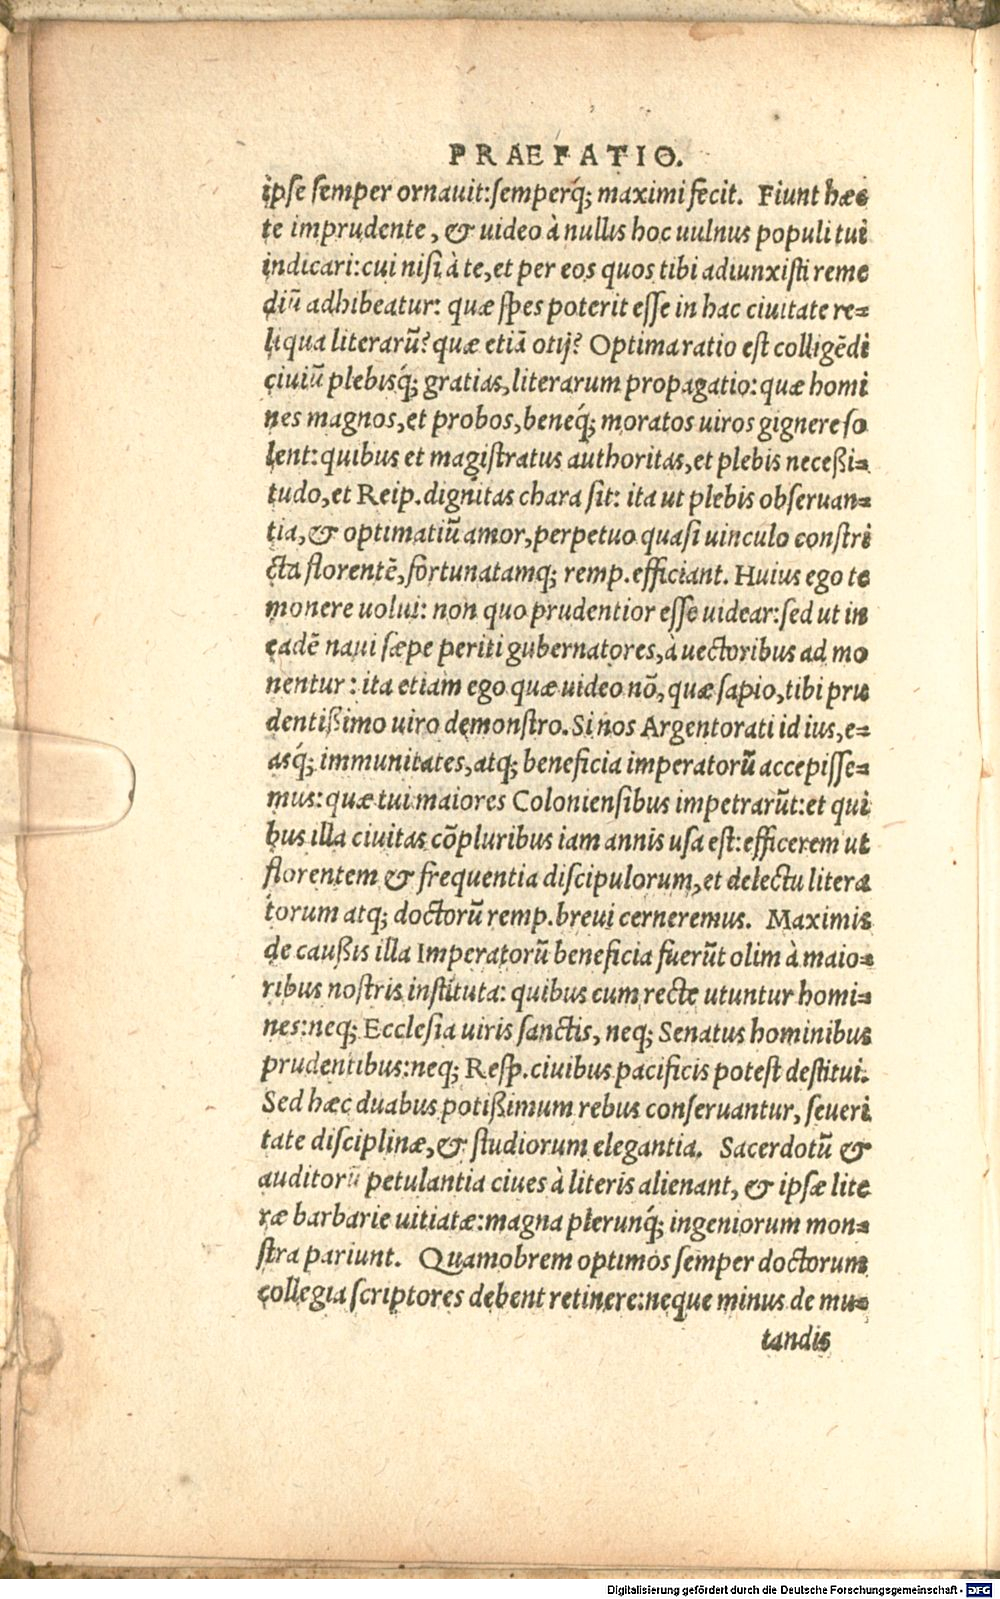 PRAEFATIO.
ipse semper ornauit:semperq́; maximi fecit. Fiunt hæc
te imprudente, & uideo à nullis hoc uulnus populi tui
indicari:cui nisi à te,et per eos quos tibi adiunxisti reme
diū adhibeatur: quæ spes poterit esse in hac ciuitate re=
liqua literarū? quæ etiā otij? Optima ratio est colligēdi
ciuiū plebisq́; gratias,literarum propagatio:quæ homi
nes magnos,et probos,beneq́; moratos uiros gignere so
lent:quibus et magistratus authoritas,et plebis neceßi=
tudo,et Reip.dignitas chara sit: ita ut plebis obseruan=
tia,& optimatiū amor,perpetuo quasi uinculo constri
cta florentē,fortunatamq; remp.efficiant. Huius ego te
monere uolui: non quo prudentior esse uidear:sed ut in
eadē naui sæpe periti gubernatores,à uectoribus ad mo
nentur: ita etiam ego quæ uideo nō,quæ sapio,tibi pru
dentißimo uiro demonstro. Si nos Argentorati id ius,e=
asq́; immunitates,atq; beneficia imperatorū accepisse=
mus:quæ tui maiores Coloniensibus impetrarūt:et qui
bus illa ciuitas cōpluribus iam annis usa est:efficerem ut
florentem & frequentia discipulorum,et delectu litera
torum atq; doctorū remp.breui cerneremus. Maximis
de caußis illa Imperatorū beneficia fuerūt olim à maio=
ribus nostris instituta: quibus cum recte utuntur homi=
nes:neq; Ecclesia uiris sanctis, neq; Senatus hominibus
prudentibus:neq; Resp.ciuibus pacificis potest destitui.
Sed hæc duabus potißimum rebus conseruantur, seueri
tate disciplinæ,& studiorum elegantia. Sacerdotū &
auditorū petulantia ciues à literis alienant, & ipsæ lite
ræ barbarie uitiatæ:magna plerunq́; ingeniorum mon=
stra pariunt. Quamobrem optimos semper doctorum
collegia scriptores debent retinere:neque minus de mu=
tandis
Digitalisierung gefördert durch die Deutsche Forschungsgemeinschaft - DFG